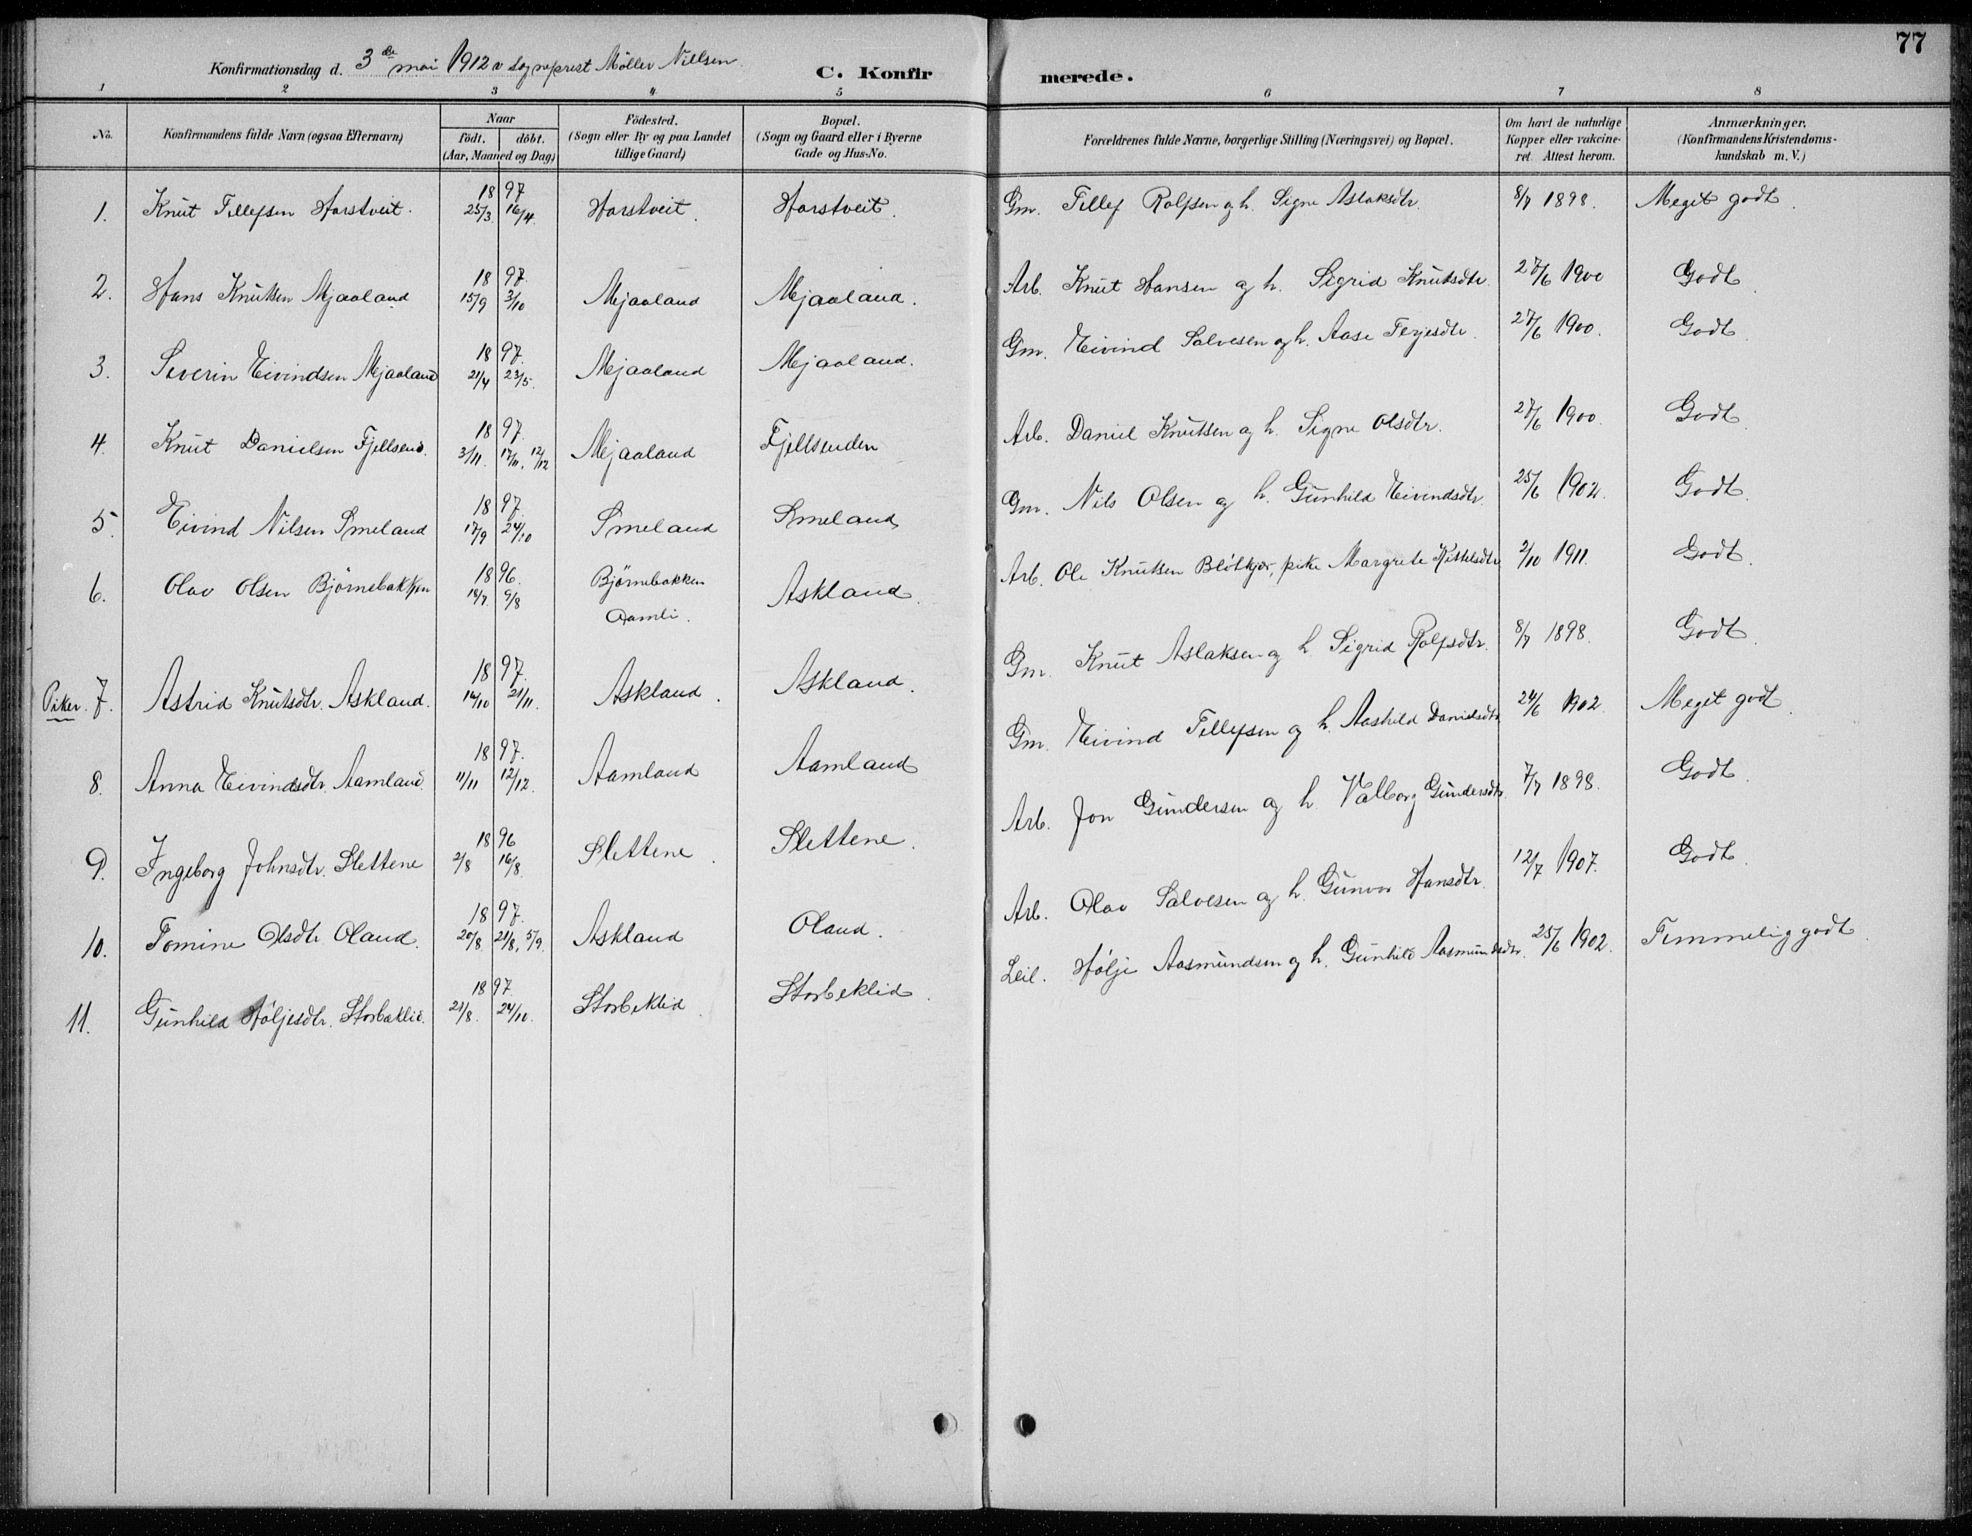 77
Konfirmationsdag d. 3de mai 1912 v sogneprest Møller Nillsen
C. Konfirmerede.
1 2 3 4 5 6 7 8
No. | Konfirmandens fulde Navn (ogsaa Efternavn) | Naar födt. döbt. (Aar, Maaned og Dag) | Födested. (Sogn eller By og paa Landet tillige Gaard) | Bopæl. (Sogn og Gaard eller i Byerne Gade og Hus-No. | Forældrenes fulde Navne, borgerlige Stilling (Næringsvei) og Bopæl. | Om havt de naturlige Kopper eller vakcineret. Attest herom. | Anmærkninger. (Konfirmandens Kristendomskundskab m. V.)
1. Knut Tellefsen Harstveit. 1897 25/3. 16/4. Harstveit. Harstveit. Gm. Tellef Rolfsen og h. Signe Aslaksdtr. 8/7 1898. Meget godt.
2. Hans Knutsen Mjaaland 1897. 15/9 3/10 Mjaaland Mjaaland. Arb. Knut Hansen og h. Sigrid Knutsdtr. 27/6 1900 Godt
3. Severin Eivindsen Mjaaland 1897. 21/4 23/5. Mjaaland Mjaaland. Gm. Eivind Salvesen og h. Aase Terjesdtr. 27/6 1900. Godt
4. Knut Danielsen Fjellsend. 1897. 3/11. 17/11, 12/12 Mjaaland Fjellsenden Arb. Daniel Knutsen og h. Signe Olsdtr. 27/6 1900. Godt
5. Eivind Nilsen Smeland 1897. 17/9 24/10 Smeland Smeland Gm. Nils Olsen og h. Gunhild Eivindsdtr. 25/6 1902. Godt
6. Olav Olsen Bjørnebakken 1896. 18/7 9/8 Bjørnebakken Aamli. Askland. Arb. Ole Knutsen Bløtkjær, pike Margrete Kittelsdtr 2/10 1911. Godt
Piker. 7. Astrid Knutsdtr. Askland. 1897. 14/10 21/11. Askland. Askland. Gm. Knut Aslaksen og h. Sigrid Rolfsdtr. 8/7 1898. Godt.
8. Anna Eivindsdtr. Aamland. 1897. 11/11 12/12. Aamland Aamland Gm. Eivind Tellefsen og h. Aashild Danielsdtr 24/6 1902. Meget godt.
9. Ingeborg Johnsdtr. Slettene 1896 2/8 16/8. Slettene. Slettene. Arb. Jon Gundersen og h. Valborg Gundersdtr. 7/7 1898. Godt.
10. Tomine Olsdtr. Oland. 1897. 20/8 21/8, 5/9. Askland Oland. Arb. Olav Salvesen og h. Gunvor Hansdtr. 12/7 1907. Godt.
11. Gunhild Høljesdtr. Storbeklid. 1897. 21/8. 24/10. Storbeklid Storbeklid. Leil. Hølje Aasmundsen og h. Gunhild Aasmundsdtr. 25/6 1902. Temmelig godt.